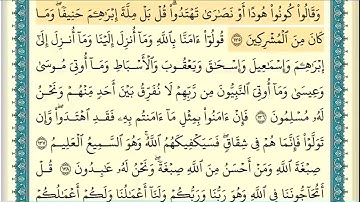 وَقَالُوا۟ كُونُوا۟ هُودًا أَوْ نَصَٰرَىٰ تَهْتَدُوا۟ ۗ قُلْ بَلْ مِلَّةَ إِبْرَٰهِـۧمَ حَنِيفًا ۖ وَمَا
كَانَ مِنَ ٱلْمُشْرِكِينَ ١٣٥ قُولُوٓا۟ ءَامَنَّا بِٱللَّهِ وَمَآ أُنزِلَ إِلَيْنَا وَمَآ أُنزِلَ إِلَىٰٓ
إِبْرَٰهِـۧمَ وَإِسْمَٰعِيلَ وَإِسْحَٰقَ وَيَعْقُوبَ وَٱلْأَسْبَاطِ وَمَآ أُوتِىَ مُوسَىٰ
وَعِيسَىٰ وَمَآ أُوتِىَ ٱلنَّبِيُّونَ مِن رَّبِّهِمْ لَا نُفَرِّقُ بَيْنَ أَحَدٍ مِّنْهُمْ وَنَحْنُ
لَهُۥ مُسْلِمُونَ ١٣٦ فَإِنْ ءَامَنُوا۟ بِمِثْلِ مَآ ءَامَنتُم بِهِۦ فَقَدِ ٱهْتَدَوا۟ ۖ وَّإِن
تَوَلَّوْا۟ فَإِنَّمَا هُمْ فِى شِقَاقٍ ۖ فَسَيَكْفِيكَهُمُ ٱللَّهُ ۚ وَهُوَ ٱلسَّمِيعُ ٱلْعَلِيمُ ١٣٧
صِبْغَةَ ٱللَّهِ ۖ وَمَنْ أَحْسَنُ مِنَ ٱللَّهِ صِبْغَةً ۖ وَنَحْنُ لَهُۥ عَٰبِدُونَ ١٣٨ قُلْ
أَتُحَآجُّونَنَا فِى ٱللَّهِ وَهُوَ رَبُّنَا وَرَبُّكُمْ وَلَنَآ أَعْمَٰلُنَا وَلَكُمْ أَعْمَٰلُكُمْ